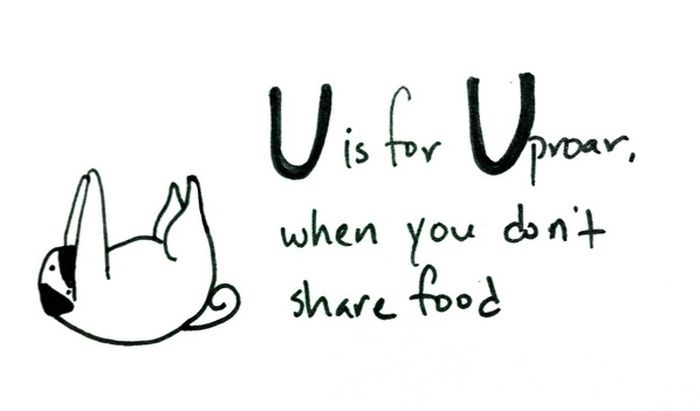 U is for Uproar,
when you don't
share food